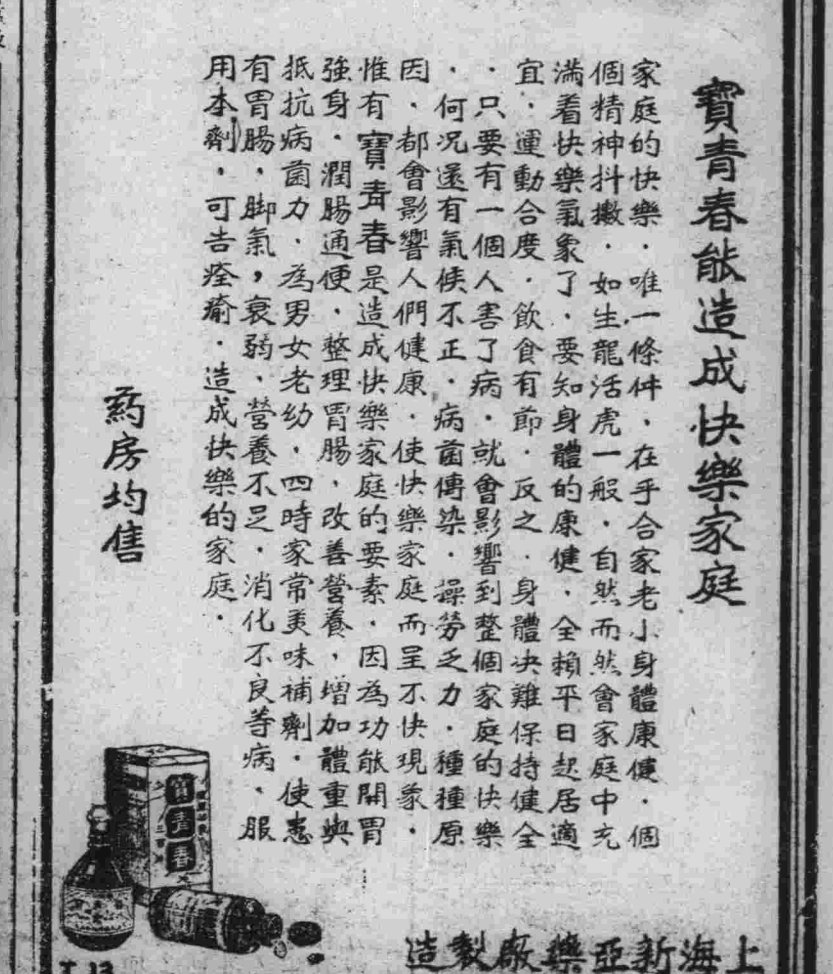 寶青春能造成快樂家庭
家庭的快樂．唯一條件．在乎合家老小身體康健．個
個精神抖擻．如生龍活虎一般．自然而然會家庭中充
滿着快樂氣象了．要知身體的康健．全賴平日起居適
宜．運動合度．飲食有節．反之．身體决難保持健全
．只要有一個人害了病．就會影響到整個家庭的快樂
．何況還有氣候不正．病菌傳染．操勞乏力．種種原
因．都會影響人們健康．使快樂家庭而呈不快現象．
惟有寶青春是造成快樂家庭的要素．因為功能開胃
強身．潤腸通便．整理胃腸．改善營養．增加體重與
抵抗病菌力．為男女老幼．四時家常美味補劑．使患
有胃腸．脚氣，衰弱．營養不足．消化不良等病．服
用本劑．可告痊瘉．造成快樂的家庭．
药房均售
寶青春
上海新亞藥廠製造
T 13